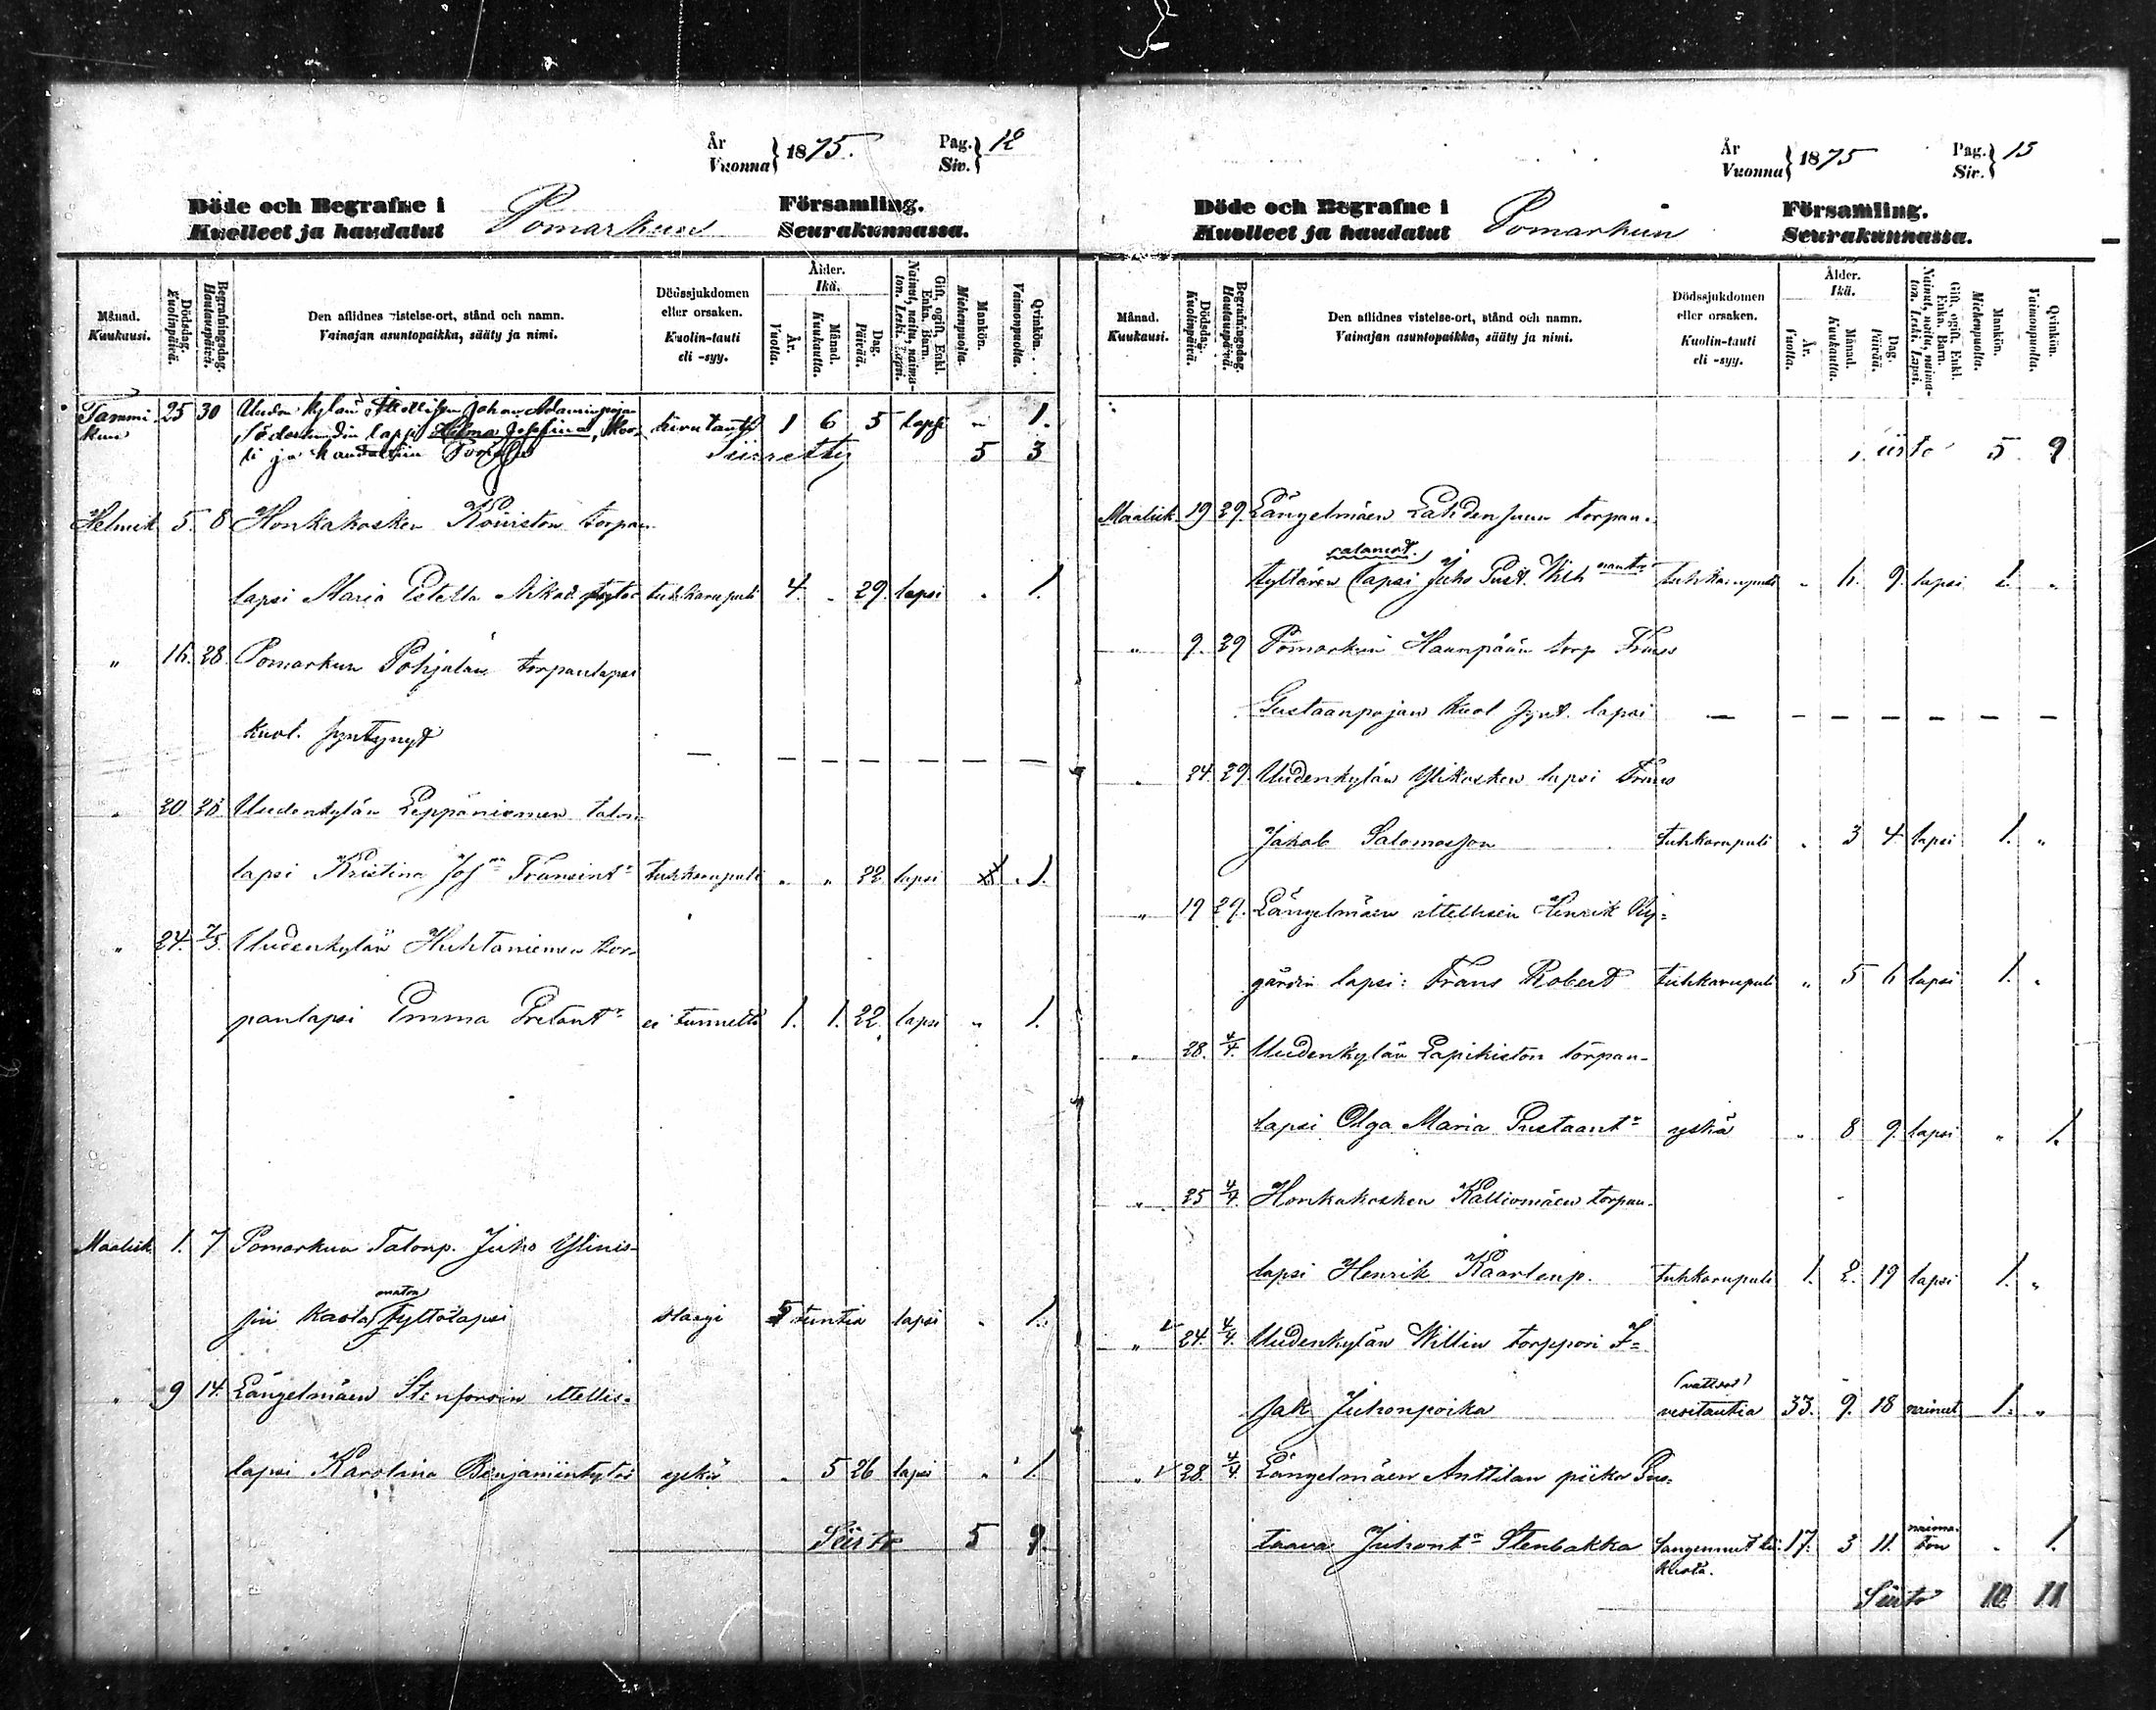 År
Vuonna } 1875.
Pag.
Siv. } 12
Döde och Begrafne i
Kuolleet ja haudatut
Pomarkun
Församling.
Seurakunnassa.
Månad.
Kuukausi.
Dödsdag.
Kuolinpäivä.
Begrafningsdag.
Hautauspäivä.
Den aflidnes vistelse-ort, stånd och namn.
Vainajan asuntopaikka, sääty ja nimi.
Dödssjukdomen
eller orsaken.
Kuolin-tauti
eli -syy.
Ålder.
Ikä.
År.
Vuotta.
Månad.
Kuukautta.
Dag.
Päivää.
Gift, ogift, Enkl.
Enka, Barn.
Nainut, naitu, naima-
ton. Leski. Lapsi.
Mankön.
Miehenpuolta.
Qvinkön.
Vaimonpuolta.
Tammi 25 30 Uuden kylän Johan Adaminpojan
kuu lapsi Helma Josefina, 1 6 5 lapsi " 1.
ja haudattiin Siirretty 5 3
Helmik 5. 8 Honkakosken Koiviston torpan
lapsi Maria tuhkarupuli 4. " 29. lapsi " 1.
" 16. 28. Pomarkun Pohjalan torpanlapsi
kuol. syntynyt — — — — — — —
" 20 28 Uudenkylän Leppäniemen talon
lapsi Kristina Fransint:r tuhkarupuli " " 22 lapsi " 1.
" 24. 7/3. Uudenkylän Huhtaniemen tor-
panlapsi Emma ei tunnettu 1. 1. 22. lapsi " 1.
Maalisk 1. 7 Pomarkun Talonp. Juho Ylinis-
maton
jin kasta tyttölapsi slaagi 5 tuntia lapsi " 1.
" 9 14. Längelmäen Stenforsin ittellis-
lapsi Karolina Benjamintytär yskä " 5 26 lapsi " 1.
Siirto 5 9.
År
Vuonna } 1875
Pag.
Siv. } 13
Döde och Begrafne i
Kuolleet ja haudatut
Pomarkun
Församling.
Seurakunnassa.
Månad.
Kuukausi.
Dödsdag.
Kuolinpäivä.
Begrafningsdag.
Hautauspäivä.
Den aflidnes vistelse-ort, stånd och namn.
Vainajan asuntopaikka, sääty ja nimi.
Dödssjukdomen
eller orsaken.
Kuolin-tauti
eli -syy.
Ålder.
Ikä.
År.
Vuotta.
Månad.
Kuukautta.
Dag.
Päivää.
Gift, ogift, Enkl.
Enka, Barn.
Nainut, naitu, naima-
ton. Leski. Lapsi.
Mankön.
Miehenpuolta.
Qvinkön.
Vaimonpuolta.
Siirto 5 9
Maalisk 19 29. Längelmäen Lahdensuun torpan-
tyttären lapsi Juho Gust. Wilh tuhkarupuli " 6. 9. lapsi 1. "
" 9. 29 Pomarkun Haanpään torp Frans
Gustaanpojan kuol synt. lapsi — — — — — — —
" 24. 29. Uudenkylän Ylikosken lapsi Frans
Jakob Salomosson tuhkarupuli " 3 4. lapsi 1. "
" 19 29. Längelmäen ittellisen Henrik Ny-
gårdin lapsi: Frans Robert tuhkarupuli " 5 6 lapsi 1. "
" 28. 4/4. Uudenkylän Lapikiston torpan-
lapsi Olga Maria Gustaant:r yskä " 8 9. lapsi " 1.
" 25 4/4. Honkakosken Kalliomäen torpan-
lapsi Henrik Kaarlenp. tuhkarupuli 1. 2. 19 lapsi 1. "
" 24. 4/4. Uudenkylän Willin torppari I-
sak Juhonpoika vesitautia 33. 9. 18 nainut 1. "
" 28. 4/4. Längelmäen Anttilan piika Gus-
naima-
taava Juhont:r Stenbakka 17. 3 11. ton " 1.
Siirto 10 11